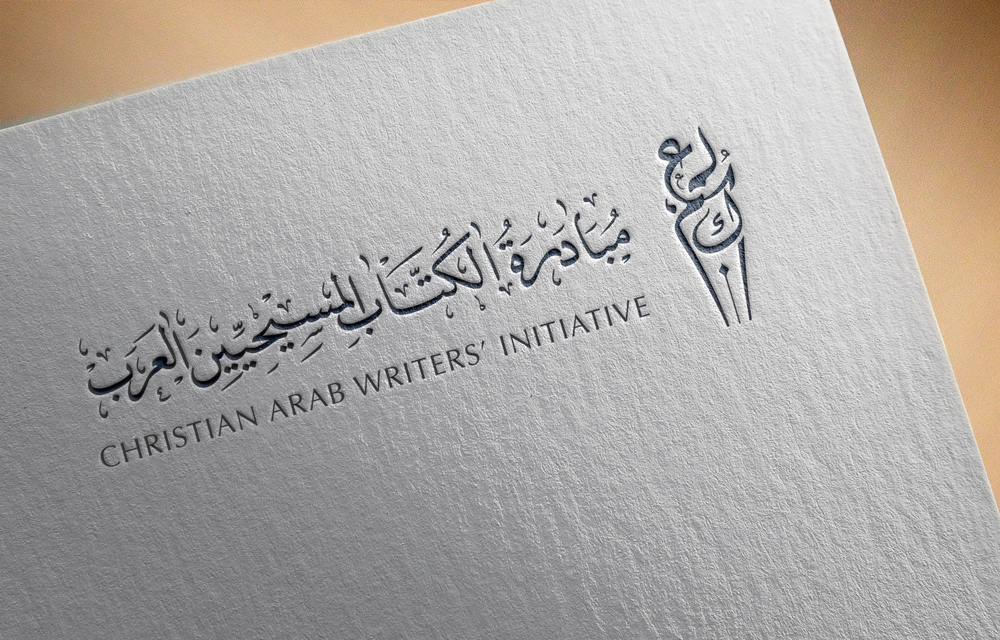 مبادرة الكتاب المسيحيين العرب
CHRISTIAN ARAB WRITERS’ INITIATIVE